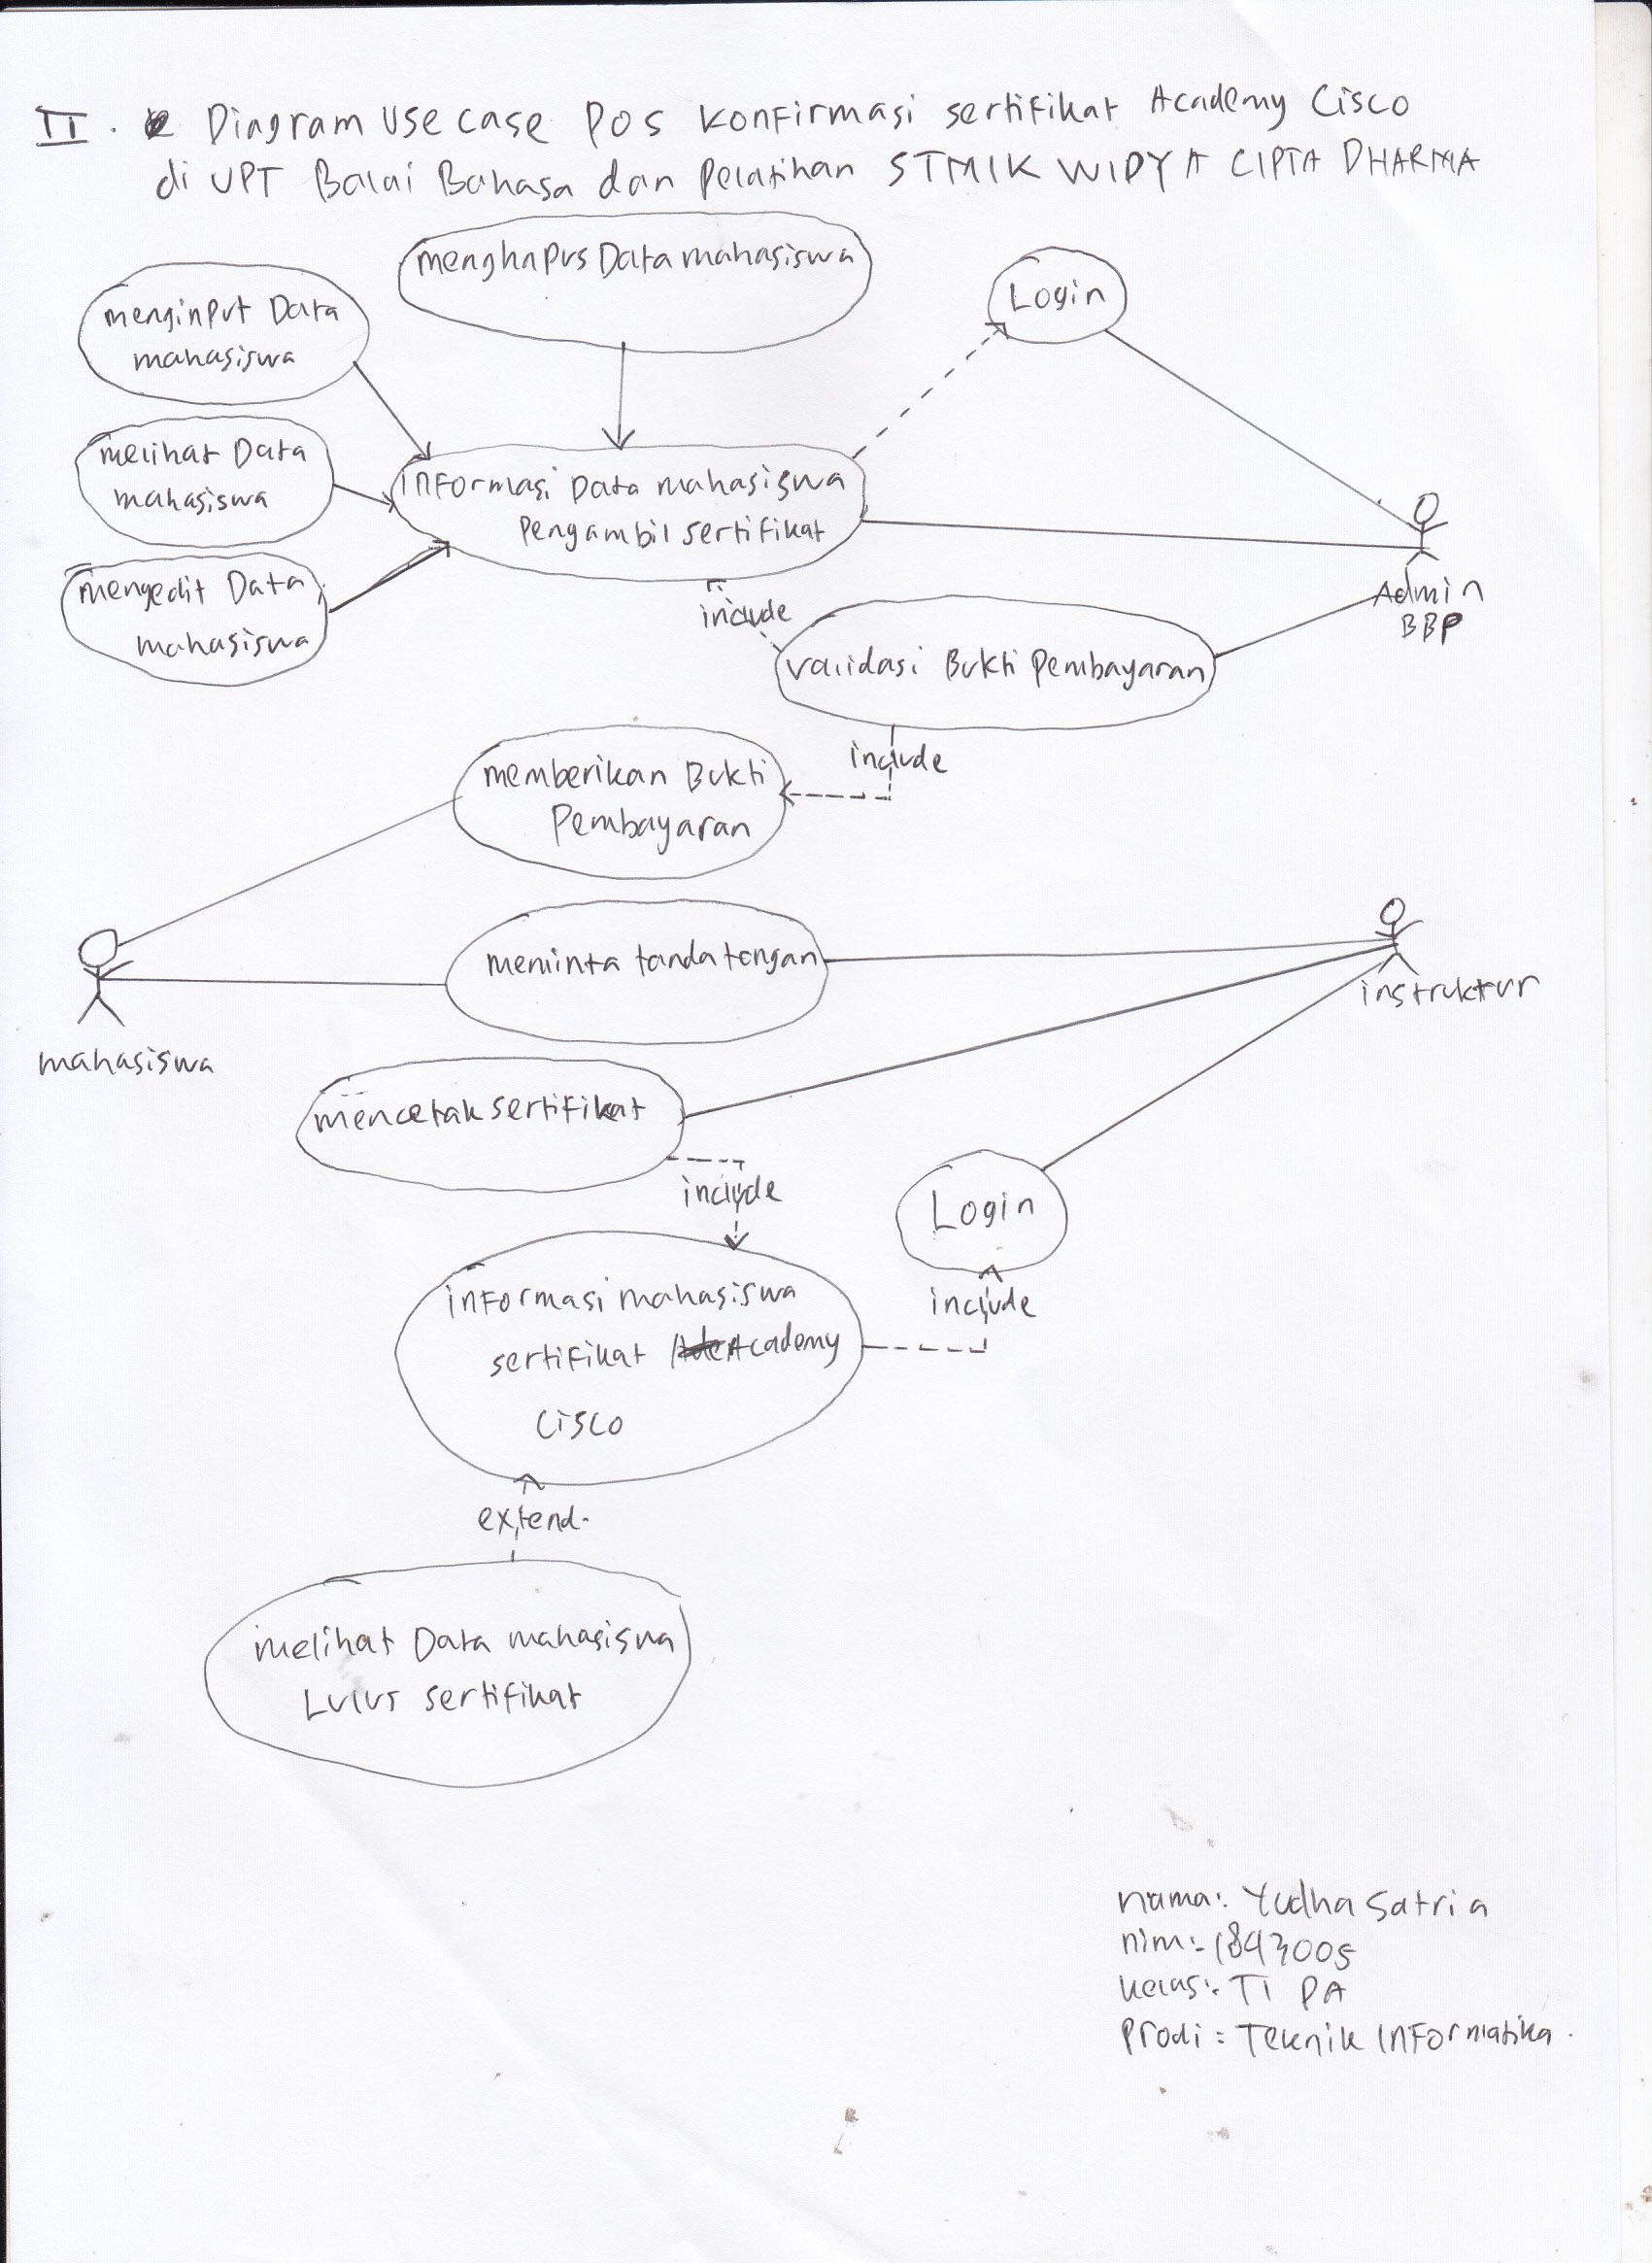 II. Diagram Use case Pos Konfirmasi sertifikat Academy Cisco
di UPT Balai Bahasa dan Pelatihan STMIK WIDYA CIPTA DHARMA
menghapus Data mahasiswa
Login
menginput Data
mahasiswa
melihat Data
mahasiswa
informasi Data mahasiswa
Pengambil sertifikat
mengedit Data
mahasiswa
Admin
BBP
include
validasi Bukti Pembayaran
include
memberikan Bukti
Pembayaran
meminta tandatangan
instruktur
mahasiswa
mencetak sertifikat
include
Login
include
informasi mahasiswa
sertifikat Academy
Cisco
extend.
melihat Data mahasiswa
Lulus sertifikat
nama: Yudha Satria
nim: 1843005
kelas: TI PA
Prodi: Teknik Informatika.